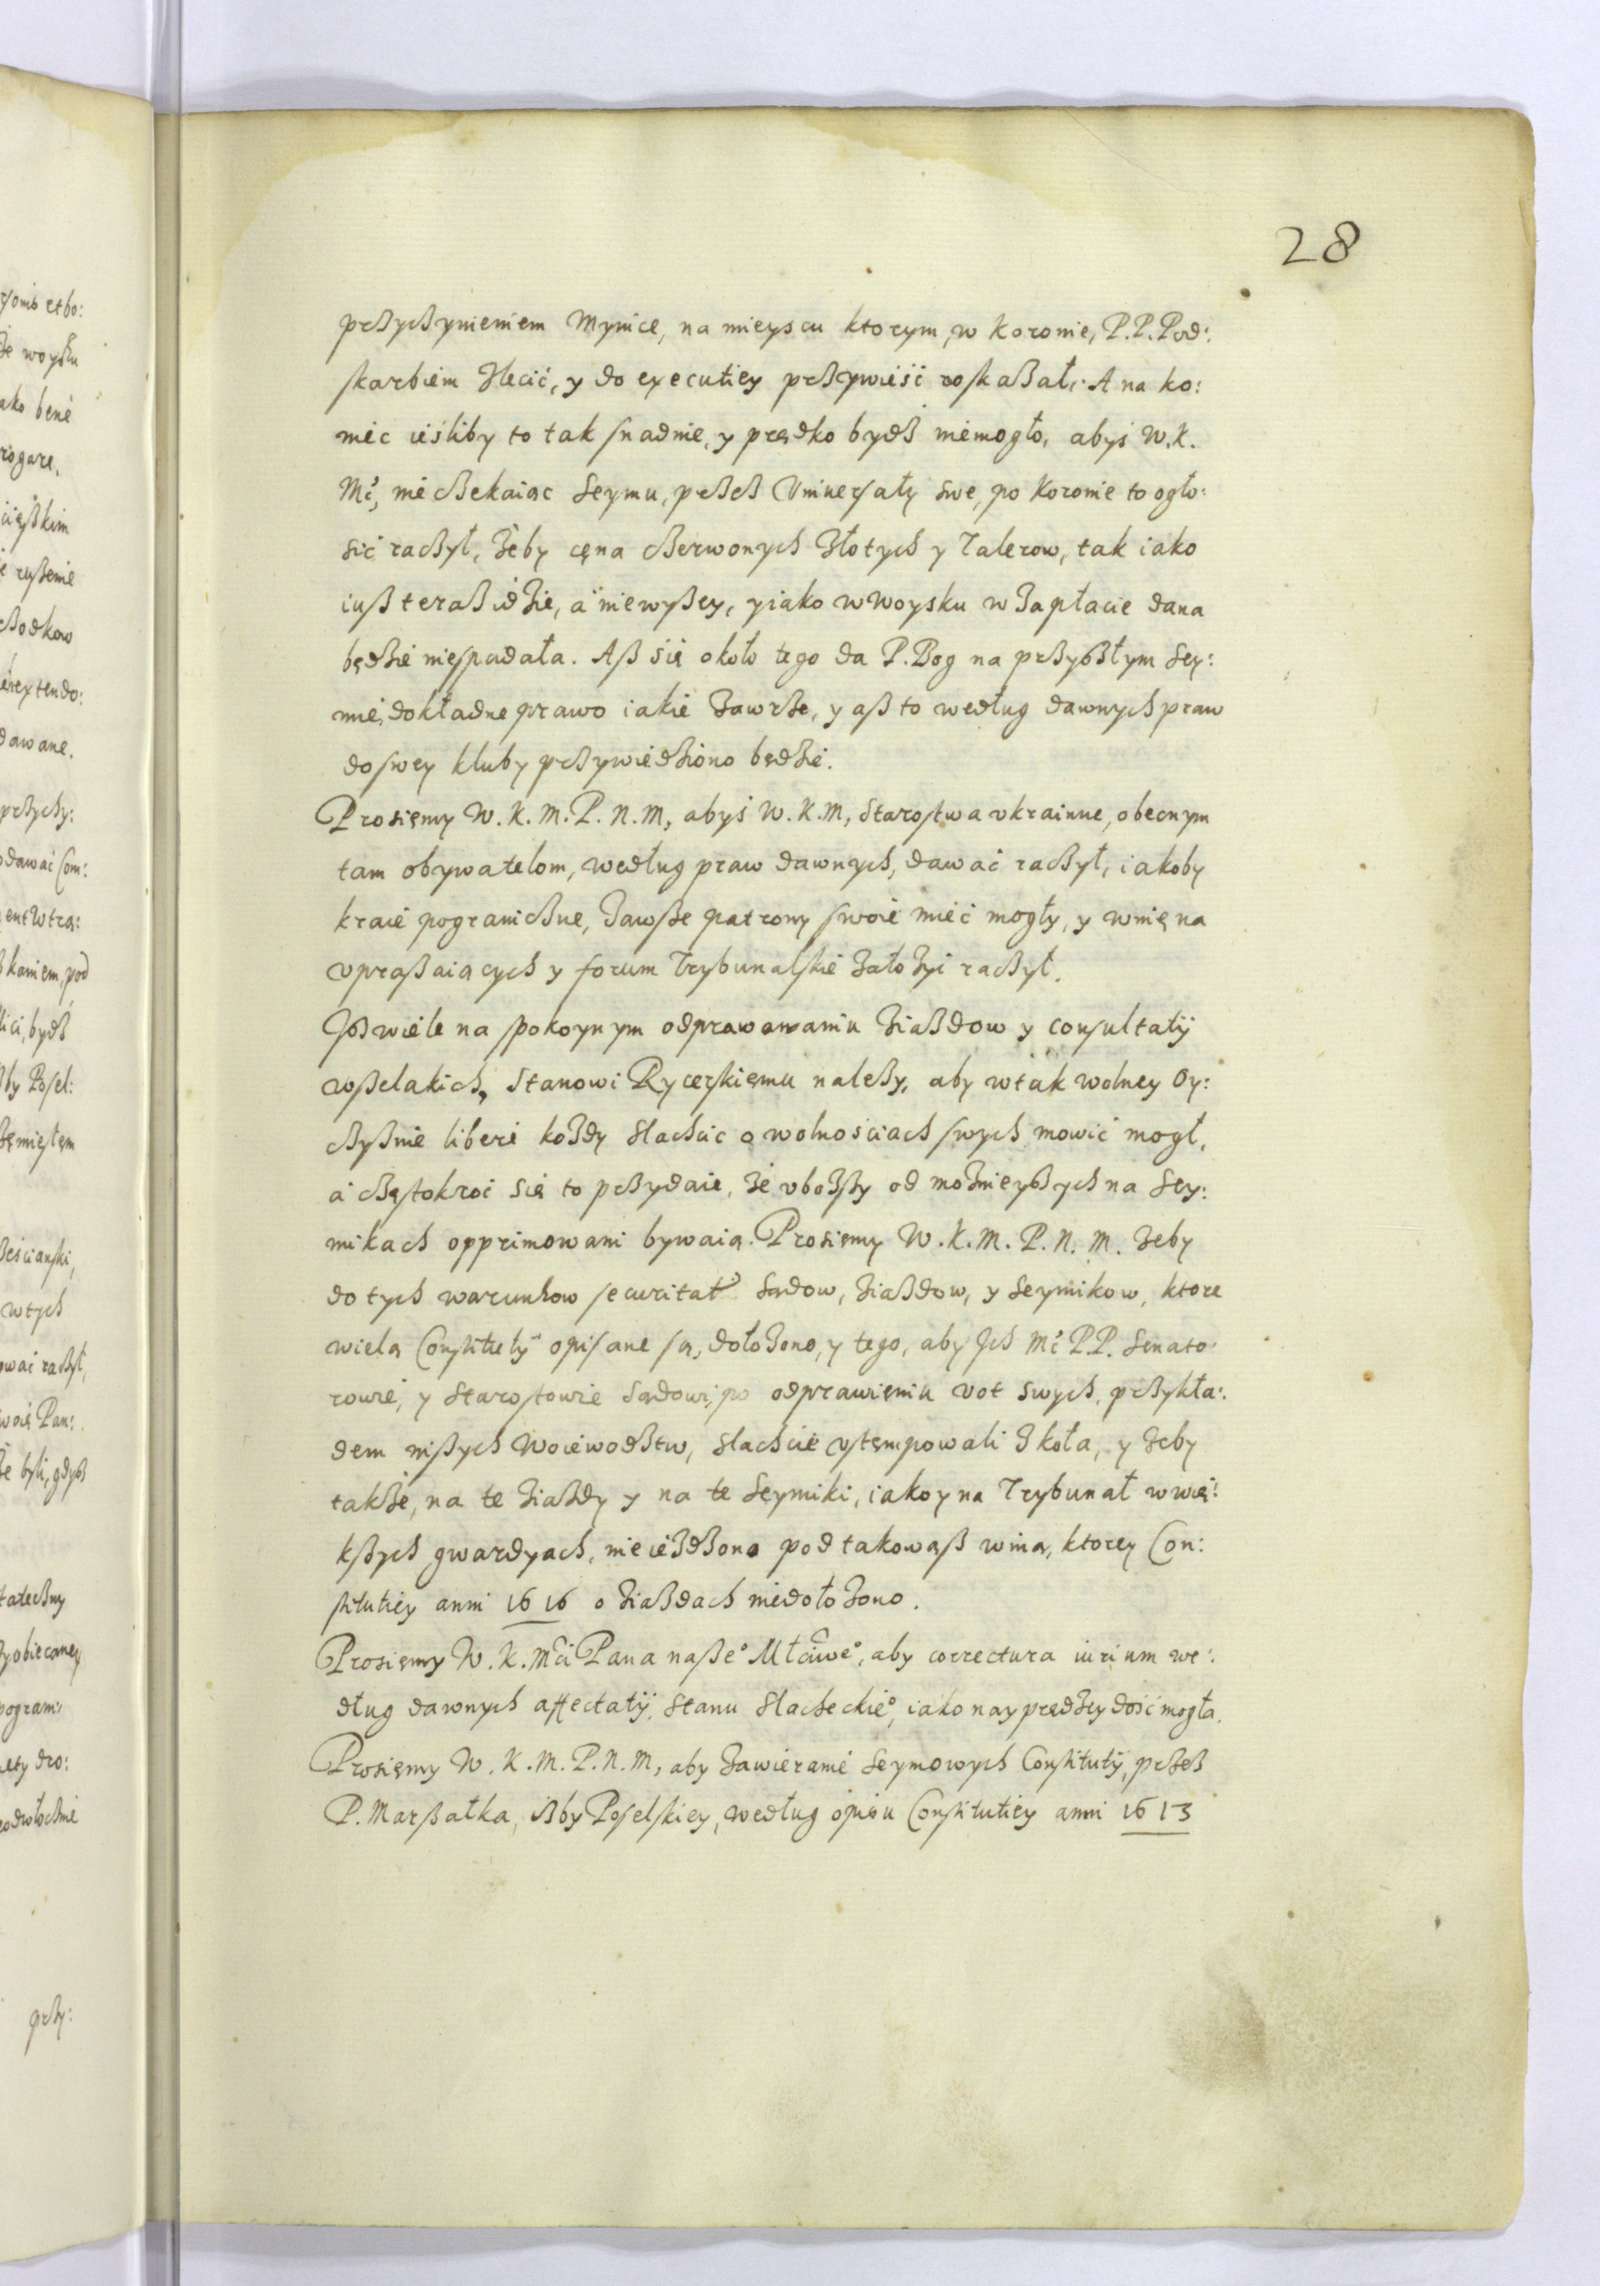 28
przyczynieniem Mynice, na mieyscu ktorym, w Koronie, P.P. Pod:
skarbiem zlecić, y do executiey przywieść roskazał. A na ko:
niec ieśliby to tak snadnie, y prędko bydź niemogło, abyś W.K.
Mć, nie czekaiąc Seymu, przez Vniuersały swe, po Koronie to ogło:
sić raczył, żeby cęna czerwonych złotych y Talerow, tak iako
iuż teraz idzie, a niewyszey, y iako w Woysku w zapłacie dana
będzie niespadała. Aż się około tego da P. Bog na przyszłym Sey:
mie, dokładne prawo iakie zawrze, y aż to według dawnych praw
do swey kluby przywiedziono będzie.
Prosięmy W. K. M. P. N. M, abyś W. K. M, Starostwa vkrainne, obecnym
tam obywatelom, według praw dawnych, dawać raczył, iakoby
kraie pograniczne, zawsze patrony swoie mieć mogły, y winę na
vpraszaiących y forum Trybunalskie założyć raczył.
Iż wiele na spokoynym odprawowaniu ziazdow y consultatij
wszelakich, Stanowi Rycerskięmu należy, aby w tak wolney Oy:
czyznie liberè każdy Slachcic o wolnościach swych mowić mogł,
a częstokroć się to przydaie, że vboższy od możnieyszych na Sey:
mikach opprimowani bywaią. Prosięmy W. K. M. P. N. M. żeby
do tych warunkow securitat. Sądow, ziazdow, y Seymikow, ktore
wielą Constitutij opisane są, dołożono, y tego, aby Ich Mć PP. Senato:
rowie, y Starostowie Sądowi, po odprawięniu vot swych, przykła:
dem inszych Woiewodztw, Slachcie vstęmpowali z koła, y żeby
także, na te ziazdy y na te Seymiki, iako y na Trybunał w wię:
kszych gwardyach, nieieżdżono pod takowąż winą, ktorey Con:
stitutiey anni 1616 o ziazdach niedołożono.
Prosięmy W. K. Mći Pana nasze° Młćiwe°, aby correctura iurium we:
dług dawnych affectatij, Stanu Slacheckie°, iako nayprędzey dość mogła.
Prosięmy W. K. M. P. N. M, aby zawieranie Seymowych Constitutij, przez
P. Marszałka, izby Poselskiey, według opisu Constitutiey anni 1613